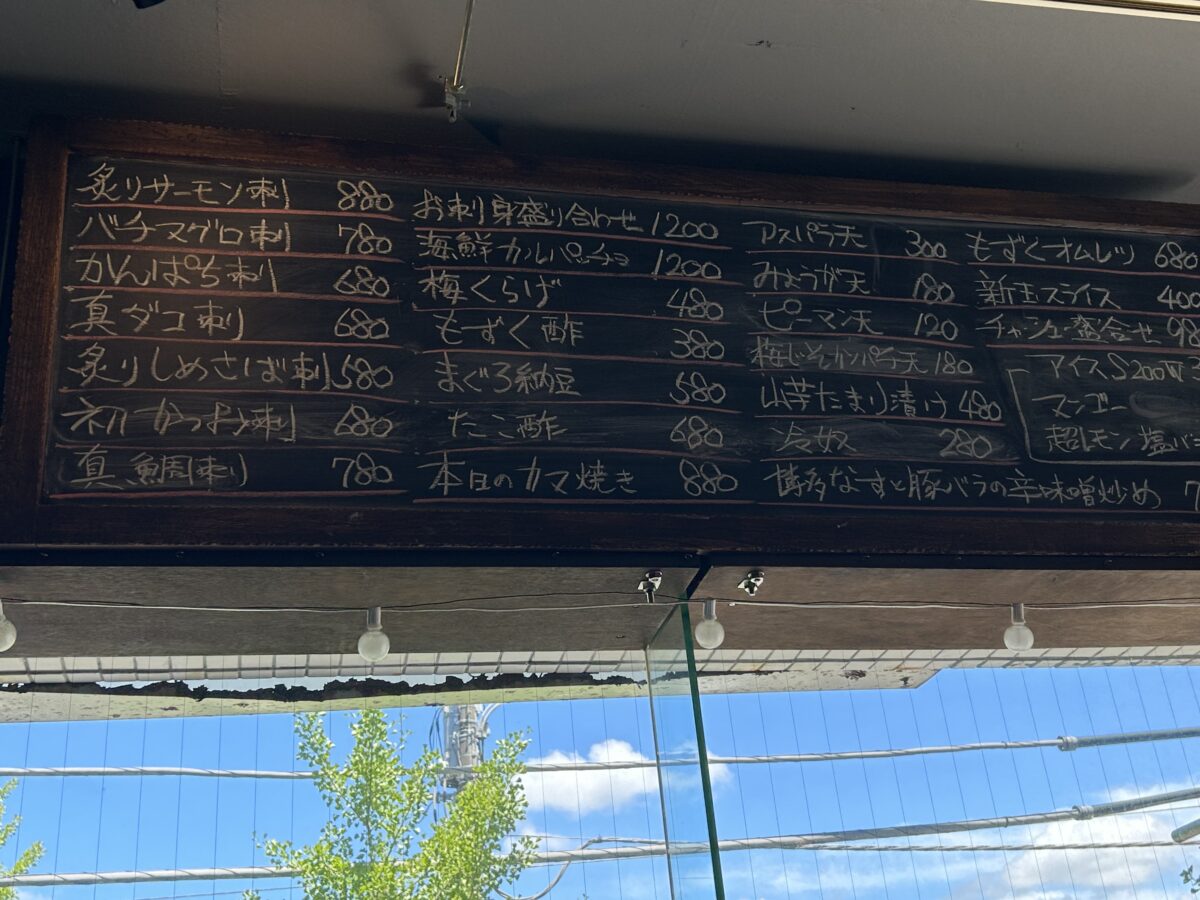 炙りサーモン刺 880
バチマグロ刺 780
かんぱち刺 680
真ダコ刺 680
炙りしめさば刺 580
初かつお刺 680
真鯛刺り 780
お刺身盛り合わせ 1200
海鮮カルパッチョ 1200
梅くらげ 480
もずく酢 380
まぐろ納豆 580
たこ酢 680
本日のカマ焼き 880
アスパラ天 300
みょうが天 180
ピーマン天 120
梅じそレンパチ天 180
山芋たまり漬け 480
冷奴 280
博多なすと豚バラの辛味噌炒め 7
もずくオムレツ 680
新玉スライス 400
チャシュー盛合せ 98
アイス S200 W3
マンゴー
超レモン 塩バ